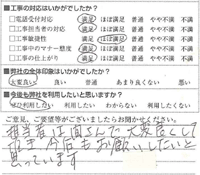 ■工事の対応はいかがでしたか？
□電話受付対応 満足 ほぼ満足 普通 やや不満 不満
□工事担当者の対応 満足 ほぼ満足 普通 やや不満 不満
□工事 満足 ほぼ満足 普通 やや不満 不満
□工事中のマナー態度 満足 ほぼ満足 普通 やや不満 不満
□工事の仕上がり 満足 ほぼ満足 普通 やや不満 不満
■弊社の全体印象はいかがでしたか？
大変良い 良い 普通 あまり良くない 悪い
■今後も弊社を利用したいと思いますか？
ぜひ利用したい 利用したい わからない 利用したくない
ご意見、ご要望等がございましたらお聞かせください。
担当者は間さんで大変良くして
頂き今后もお願いしたいと
思っています